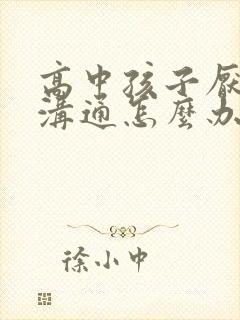 高中孩子厭
溝通怎麼办
徐小中